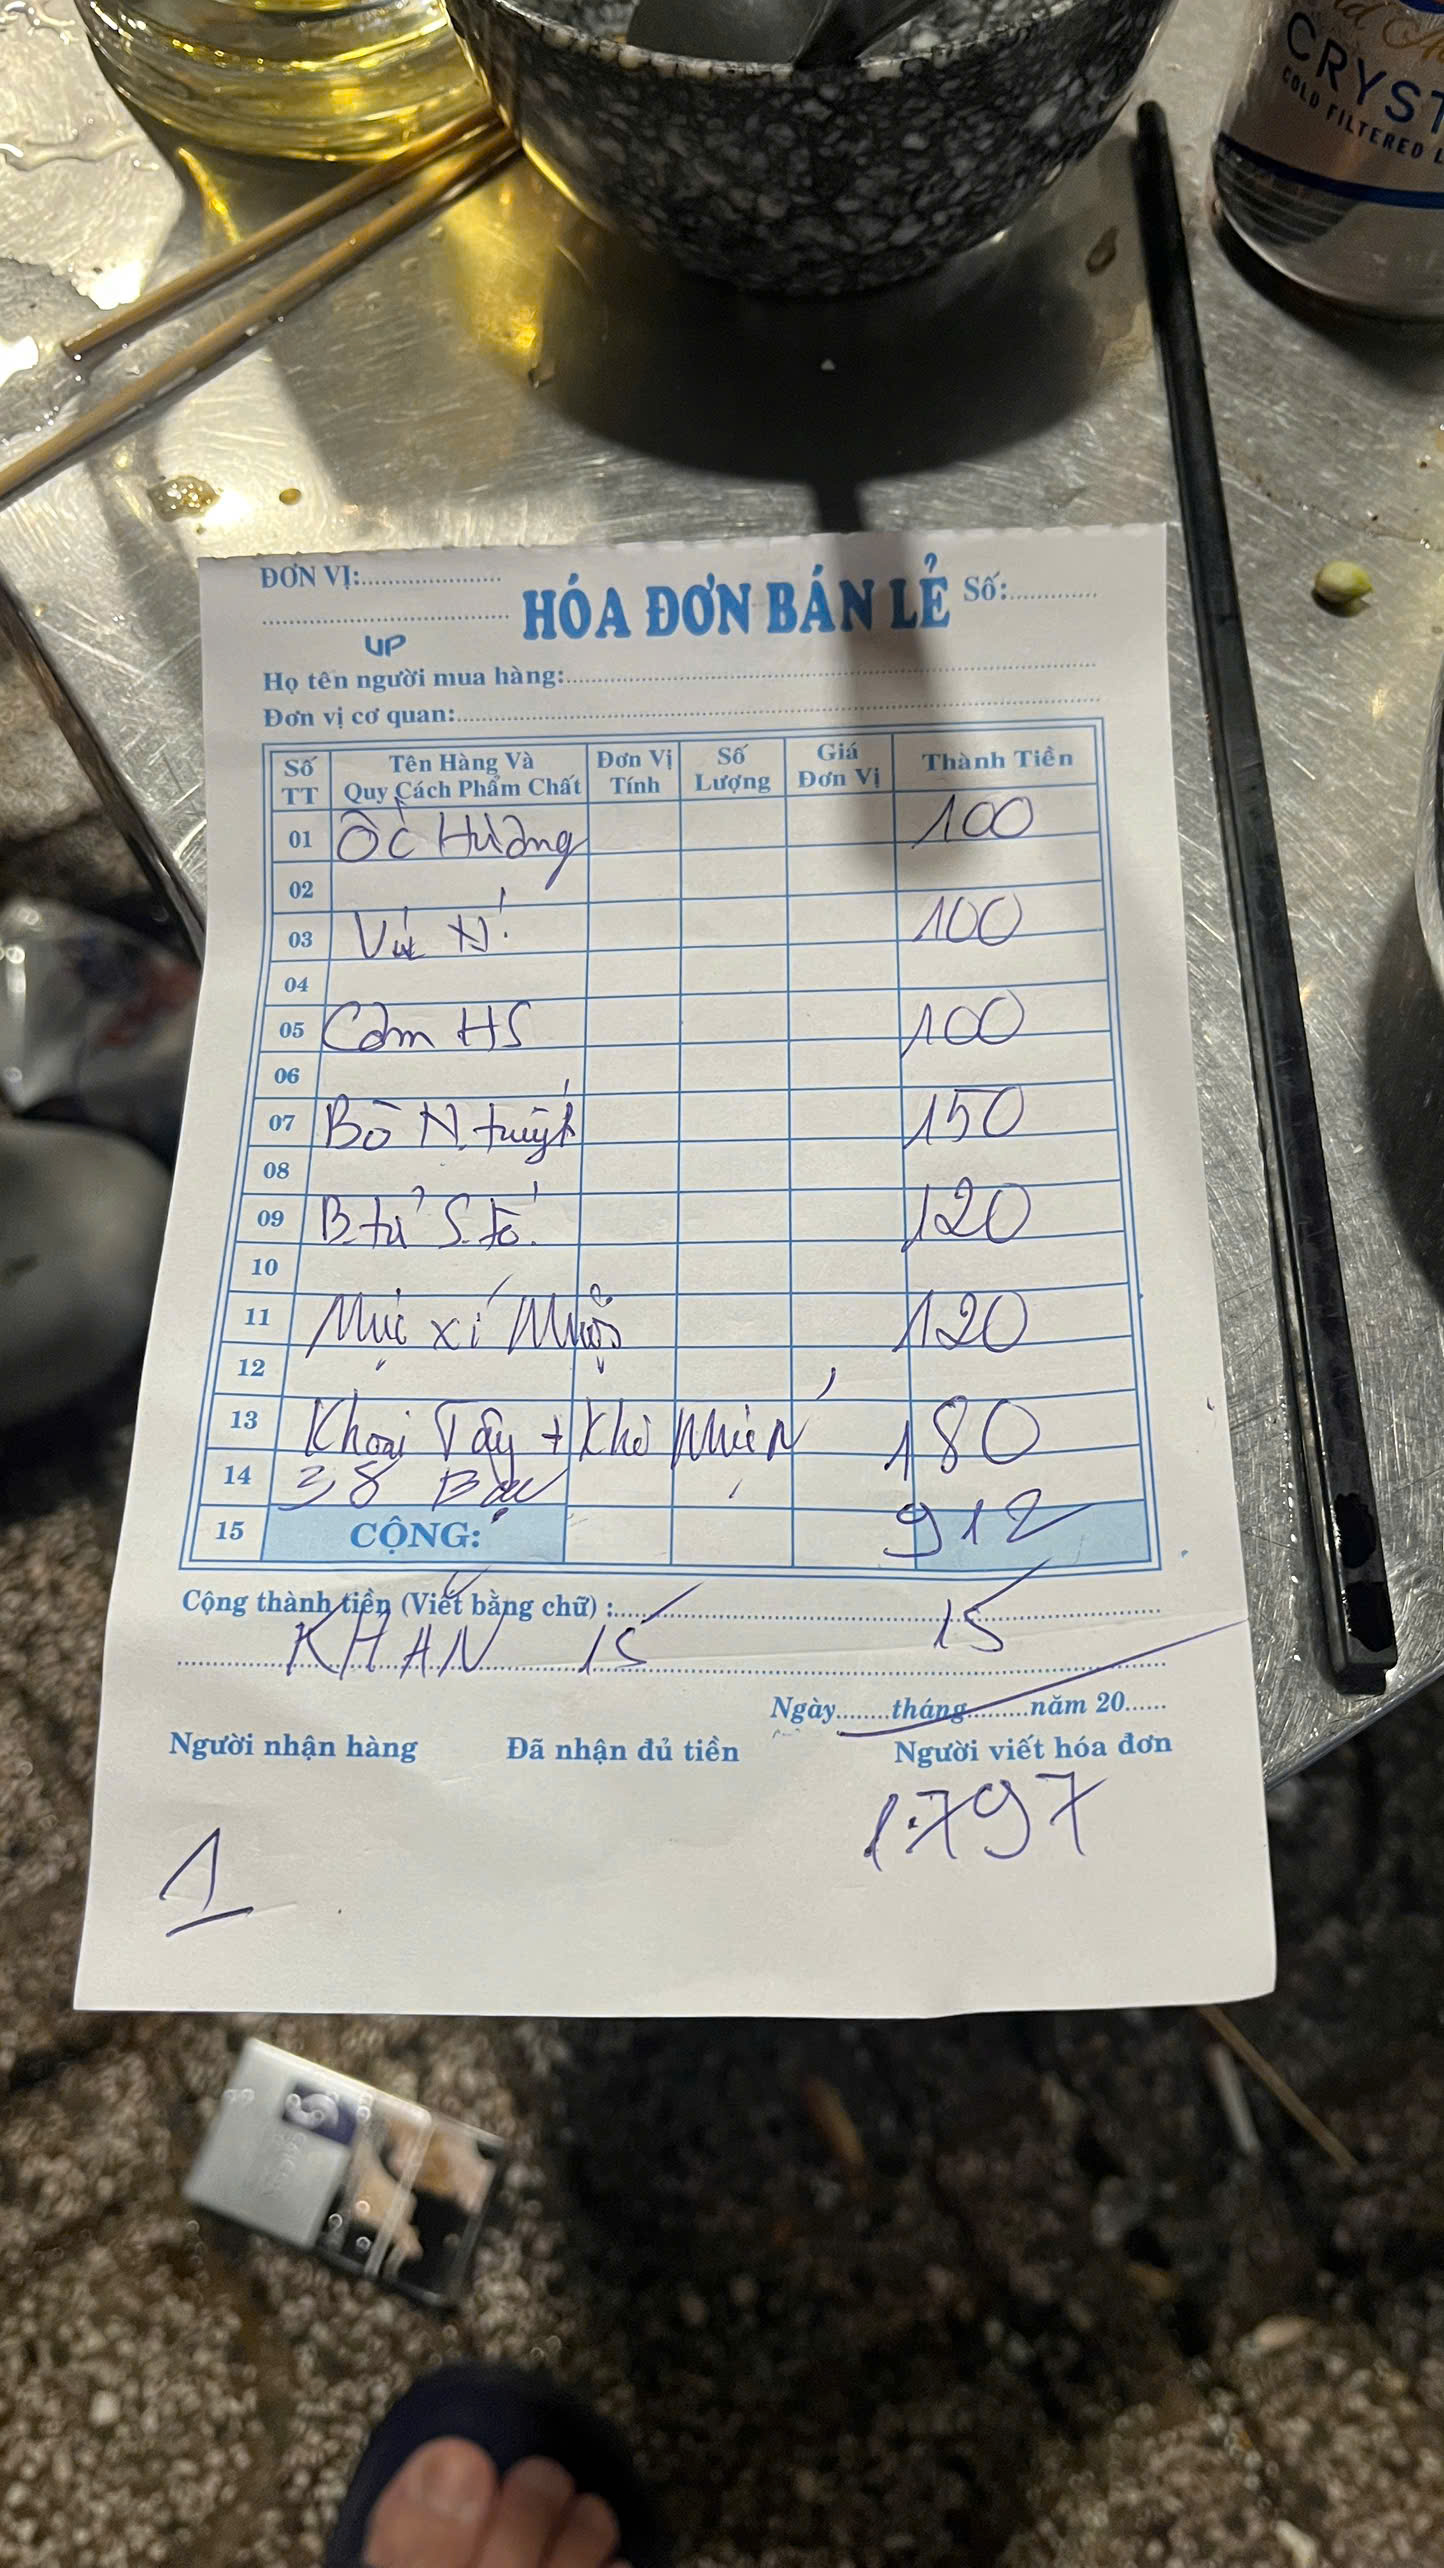 CRYST
COLD FILTERED L
ĐƠN VỊ:
HÓA ĐƠN BÁN LẺ
Số:
UP
Họ tên người mua hàng:
Đơn vị cơ quan:
Số TT Tên Hàng Và Quy Cách Phẩm Chất Đơn Vị Tính Số Lượng Giá Đơn Vị Thành Tiền
01 Ốc Hương 100
02
03 Vú N. 100
04
05 Cơm HS 100
06
07 Bò N. tuyết 150
08
09 B. tử S. tố. 120
10
11 Mực xí Muội 120
12
13 Khoai Tây + Khô Mực 180
14 38 Bạc 912
15 CỘNG:
Cộng thành tiền (Viết bằng chữ) :
KHĂN 15 15
Ngày tháng năm 20
Người nhận hàng Đã nhận đủ tiền Người viết hóa đơn
1.797
1